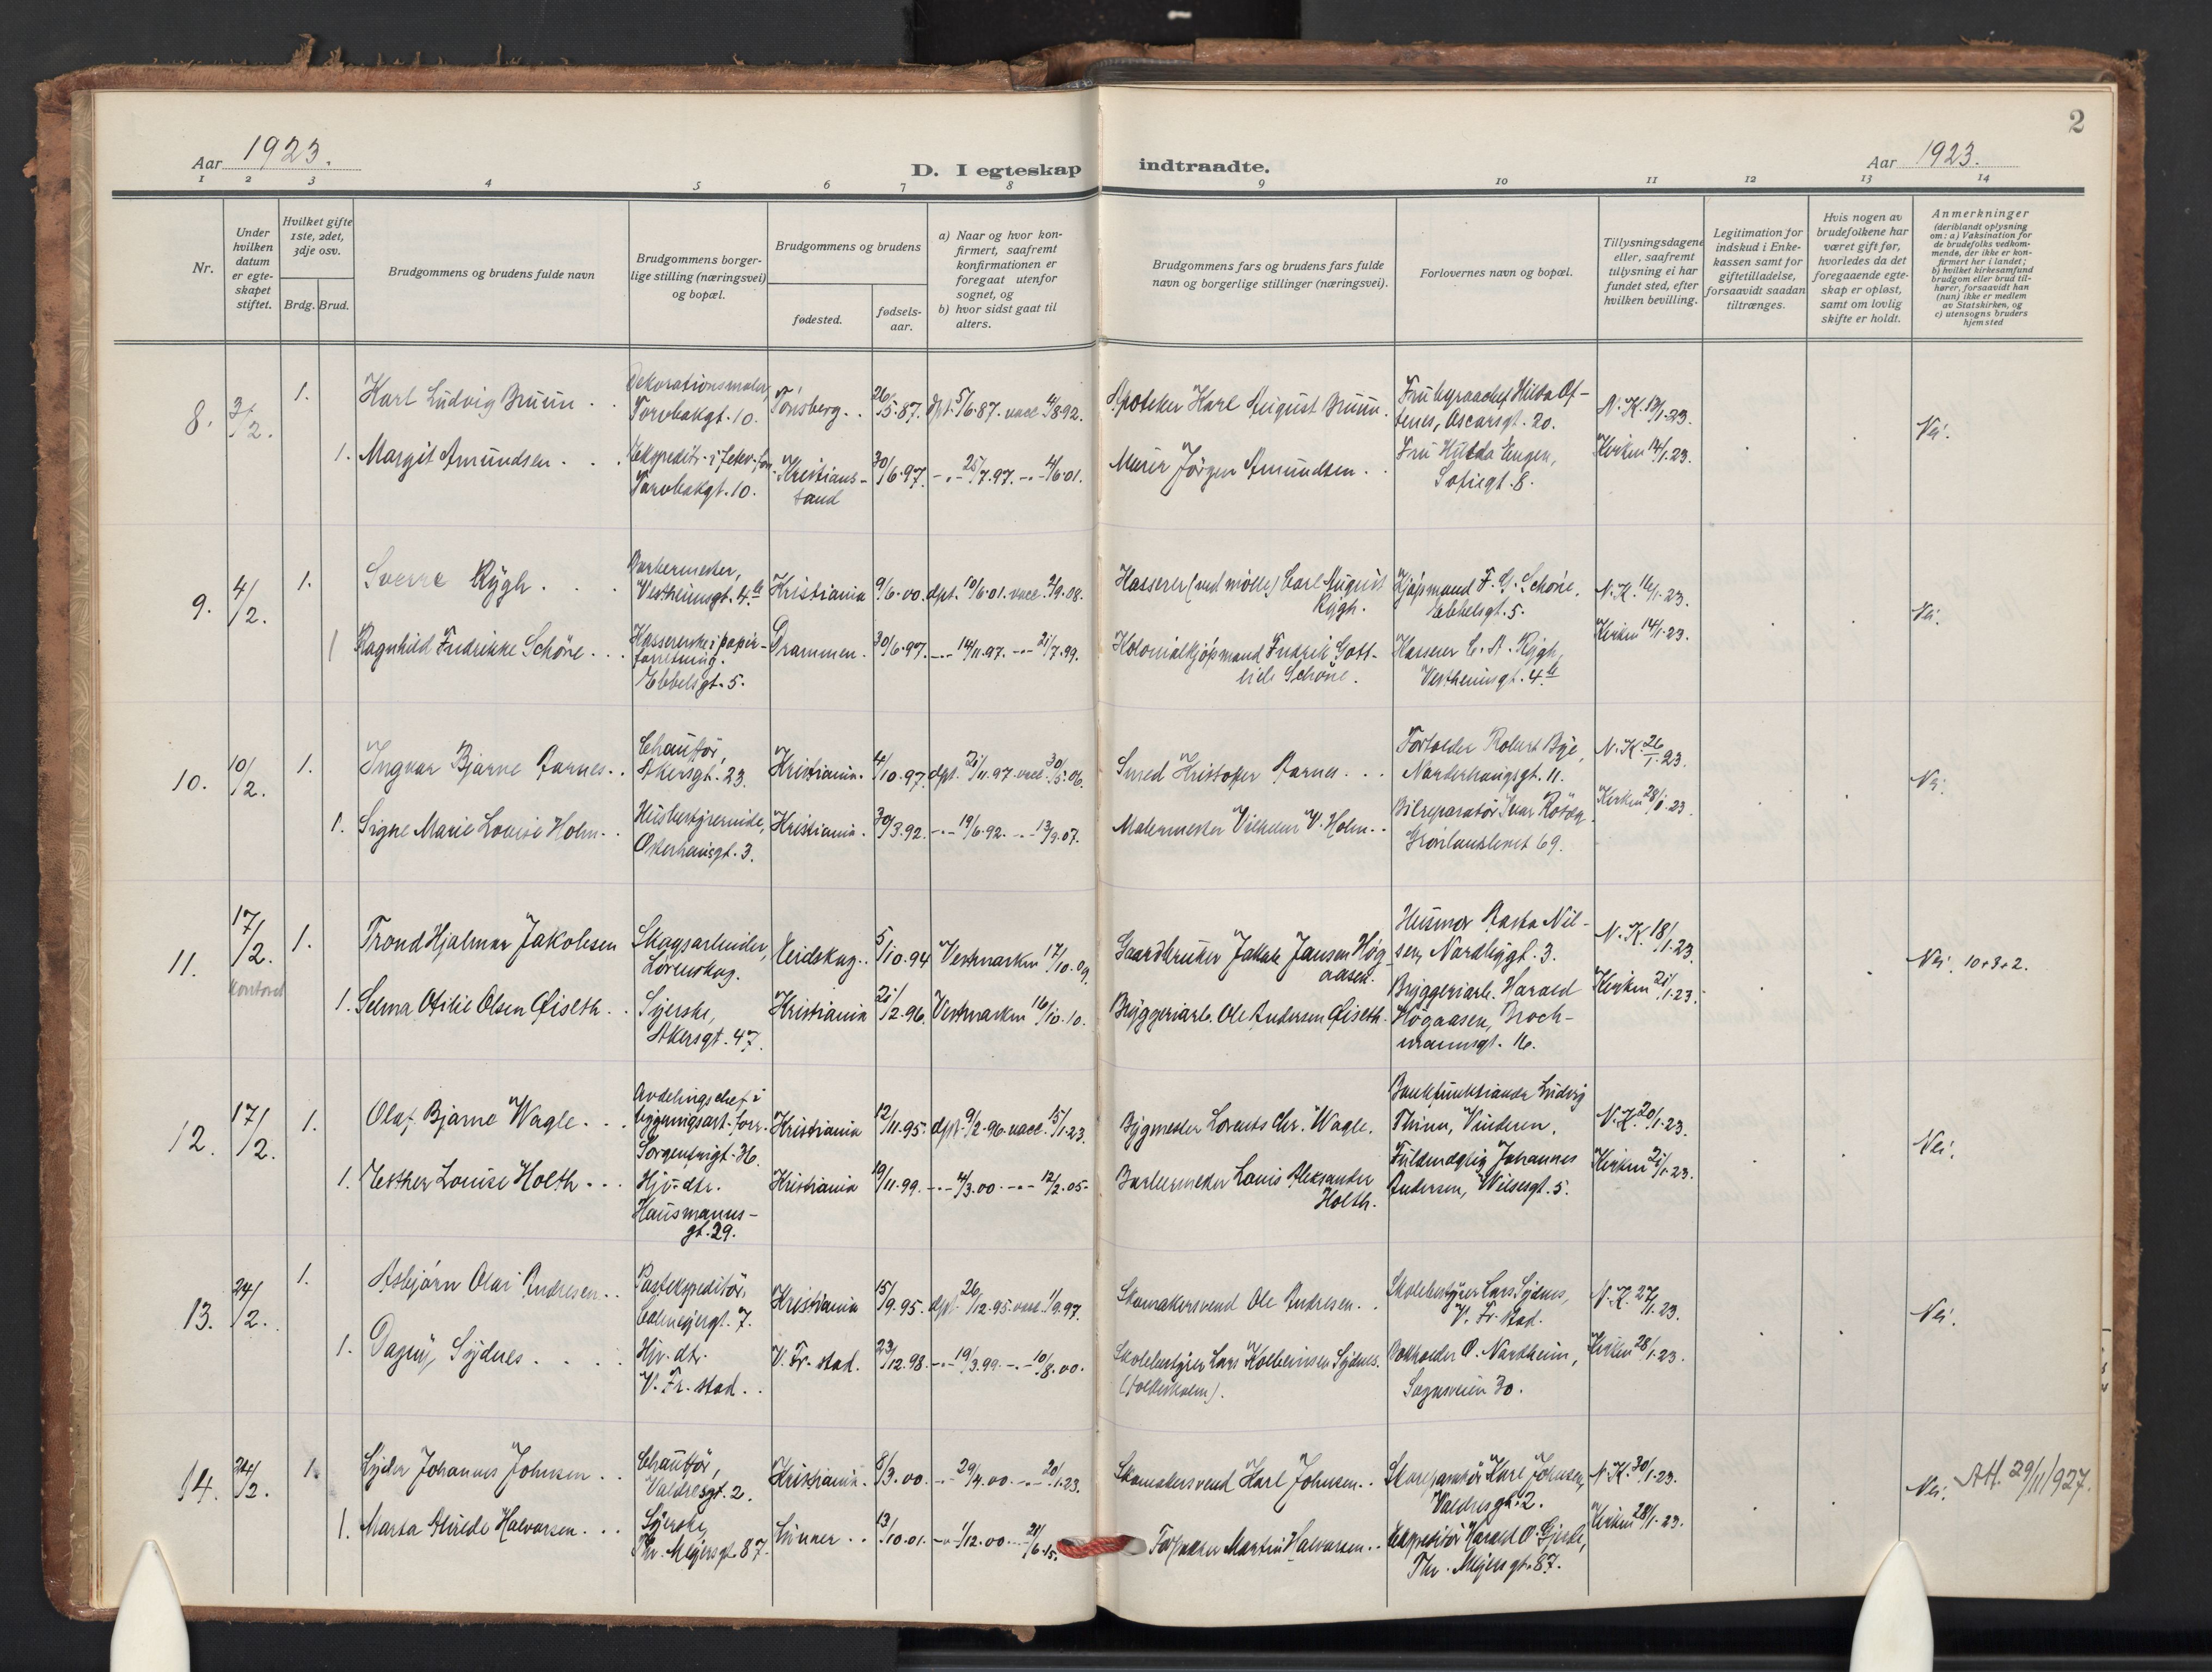 2
Aar 1923.
D. I egteskap indtraadte.
Aar 1923.
1 2 3 4 5 6 7 8 9 10 11 12 13 14
Nr.
Under hvilken datum er egteskapet stiftet.
Hvilket gifte 1ste, 2det, 3dje osv.
Brdg. Brud.
Brudgommens og brudens fulde navn
Brudgommens borgerlige stilling (næringsvei) og bopæl.
Brudgommens og brudens
fødested.
fødselsaar.
a) Naar og hvor konfirmert, saafremt konfirmationen er foregaat utenfor sognet, og
b) hvor sidst gaat til alters.
Brudgommens fars og brudens fars fulde navn og borgerlige stillinger (næringsvei).
Forlovernes navn og bopæl.
Tillysningsdagene eller, saafremt tillysning ei har fundet sted, efter hvilken bevilling.
Legitimation for indskud i Enkekassen samt for giftetilladelse, forsaavidt saadan tiltrænges.
Hvis nogen av brudefolkene har været gift før, hvorledes da det foregaaende egteskap er opløst, samt om lovlig skifte er holdt.
Anmerkninger
(deriblandt oplysning om: a) Vaksination for de brudefolks vedkommende, der ikke er konfirmert her i landet; b) hvilket kirkesamfund brudgom eller brud tilhører, forsaavidt han (hun) ikke er medlem av Statskirken, og c) utensogns bruders hjemsted
8. 3/2. 1. Karl Ludvig Bruun . . Dekorationsmaler, Torvbakgt. 10. Tønsberg. . 26/5.87. dpt. 5/6.87. vacc. 4/8.92. Apoteker Karl August Bruun. Frk. Hilda Oftenes, Oscarsgt. 20. N. K. 13/1.23. Nei.
1. Margit Amundsen . . . Torvbakgt. 10. Kristianssand 30/6.97. -"- 25/7.97. -"- 4/6.01. Murer Jörgen Amundsen . . Fru Hulda Engen, Sofiegt. 8. Kirken 14/1.23.
9. 4/2. 1. Sverre Rygh . . . Barbermester, Vestheimsgt. 4b Kristiania 9/6.00. dpt. 10/6.01. vacc. 2/9.08. Kasserer (ved mölle) Carl August Rygh. Kjöpmand F. G. Schöne, Ebbelsgt. 5. N. K. 16/1.23. Nei.
1 Ragnhild Fredrikke Schöne . . . Kassererske i papirforretning. Ebbelsgt. 5. Drammen. 30/6.97. -"- 14/11.97. -"- 21/7.99. Kolonialkjöpmand Fredrik Gottlieb Schöne. Kasserer C. A. Rygh, Vestheimsgt. 4b Kirken 14/1.23.
10. 10/2. 1. Ingvar Bjarne Aarnes. . Chauffør, Akersgt. 23. Kristiania. 4/10.97. dpt. 21/11.97. vacc. 30/5.06. Smed Kristofer Aarnes . . . Forvalter Robert Bye, Norderhaugsgt. 11. N. K. 26/1.23. Nei.
1. Signe Marie Louise Holm. . Husbestyrerinde, Osterhausgt. 3. Kristiania. 30/3.92. -"- 19/6.92. -"- 13/9.07. Malermester Vilhelm V. Holm. . Bilreparatör Ivar Grönlandsleret 69. Kirken 28/1.23.
11. 17/2. kontoret 1. Trond Hjalmar Jakobsen Skogsarbeider, Lørenskog. Eidskog. . 5/10.94 Vestmarken 17/10.09. Gaardbruker Jakob Jansen Högaasen. Husmor Aasta Nilsen, Nordbygt. 3. N. K. 18/1.23. Nei. 10+3+2.
1. Selma Otilie Olsen Øiseth . . Syerske, Akersgt. 47. Kristiania 21/2.96. Vestmarken 16/10.10. Bryggeriarb. Ole Andersen Øiseth. Bryggeriarb. Harald Högaasen, Brochmannsgt. 16. Kirken 21/1.23.
12. 17/2. 1. Olaf Bjarne Wagle. . . Avdelingschef i bygningsart. forr. Sorgenfrigt. 36. Kristiania 12/11.95. dpt. 9/2.96. vacc. 15/1.23. Bygmester Lorents Chr. Wagle. Bankfunktionær Ludvig Thinn, Vinderen. N. K. 20/1.23. Nei.
1. Esther Louise Holth. . . Hjv. dtr. Hausmannsgt. 29. Kristiania 19/11.99. -"- 4/3.00. -"- 12/2.05. Barbermester Louis Aleksander Holth. Fuldmægtig Johannes Andersen, Wilsesgt. 5. Kirken 21/1.23.
13. 24/2. 1. Asbjørn Olai Andresen. . Postekspeditör, Colmeyergt. 7. Kristiania 15/9.95. dpt. 26/12.95. vacc. 1/9.97. Skomakersvend Ole Andresen. . Skolebestyrer Lars Sydnes, V. Fr. stad. N. K. 27/1.23. Nei.
1. Dagny Sydnes . . . . Hjv. dtr. V. Fr. stad. . V. Fr. stad. 23/12.98. -"- 19/3.99. -"- 10/8.00. Skolebestyrer Lars Kolbeinsen Sydnes. Bokholder O. Nordheim, Sognsveien 30. Kirken 28/1.23.
14. 24/2. 1. Lyder Johannes Johnsen . . Chauffør, Valdresgt. 2. Kristiania. 8/3.00. -"- 29/4.00. -"- 20/1.23. Skomakersvend Karl Johnsen. . Skoreparatør Karl Johnsen, Valdresgt. 2. N. K. 30/1.23. Nei. Att. 29/11/927.
1. Marta Alvilde Halvorsen. . . Syerske, Thv. Meyersgt. 87. Lunner . . 13/10.01. -"- 1/12.00. 21/6.15. Forpakter Martin Halvorsen. . Ekspeditör Harald O. Gjerde, Thv. Meyersgt. 87. Kirken 28/1.23.